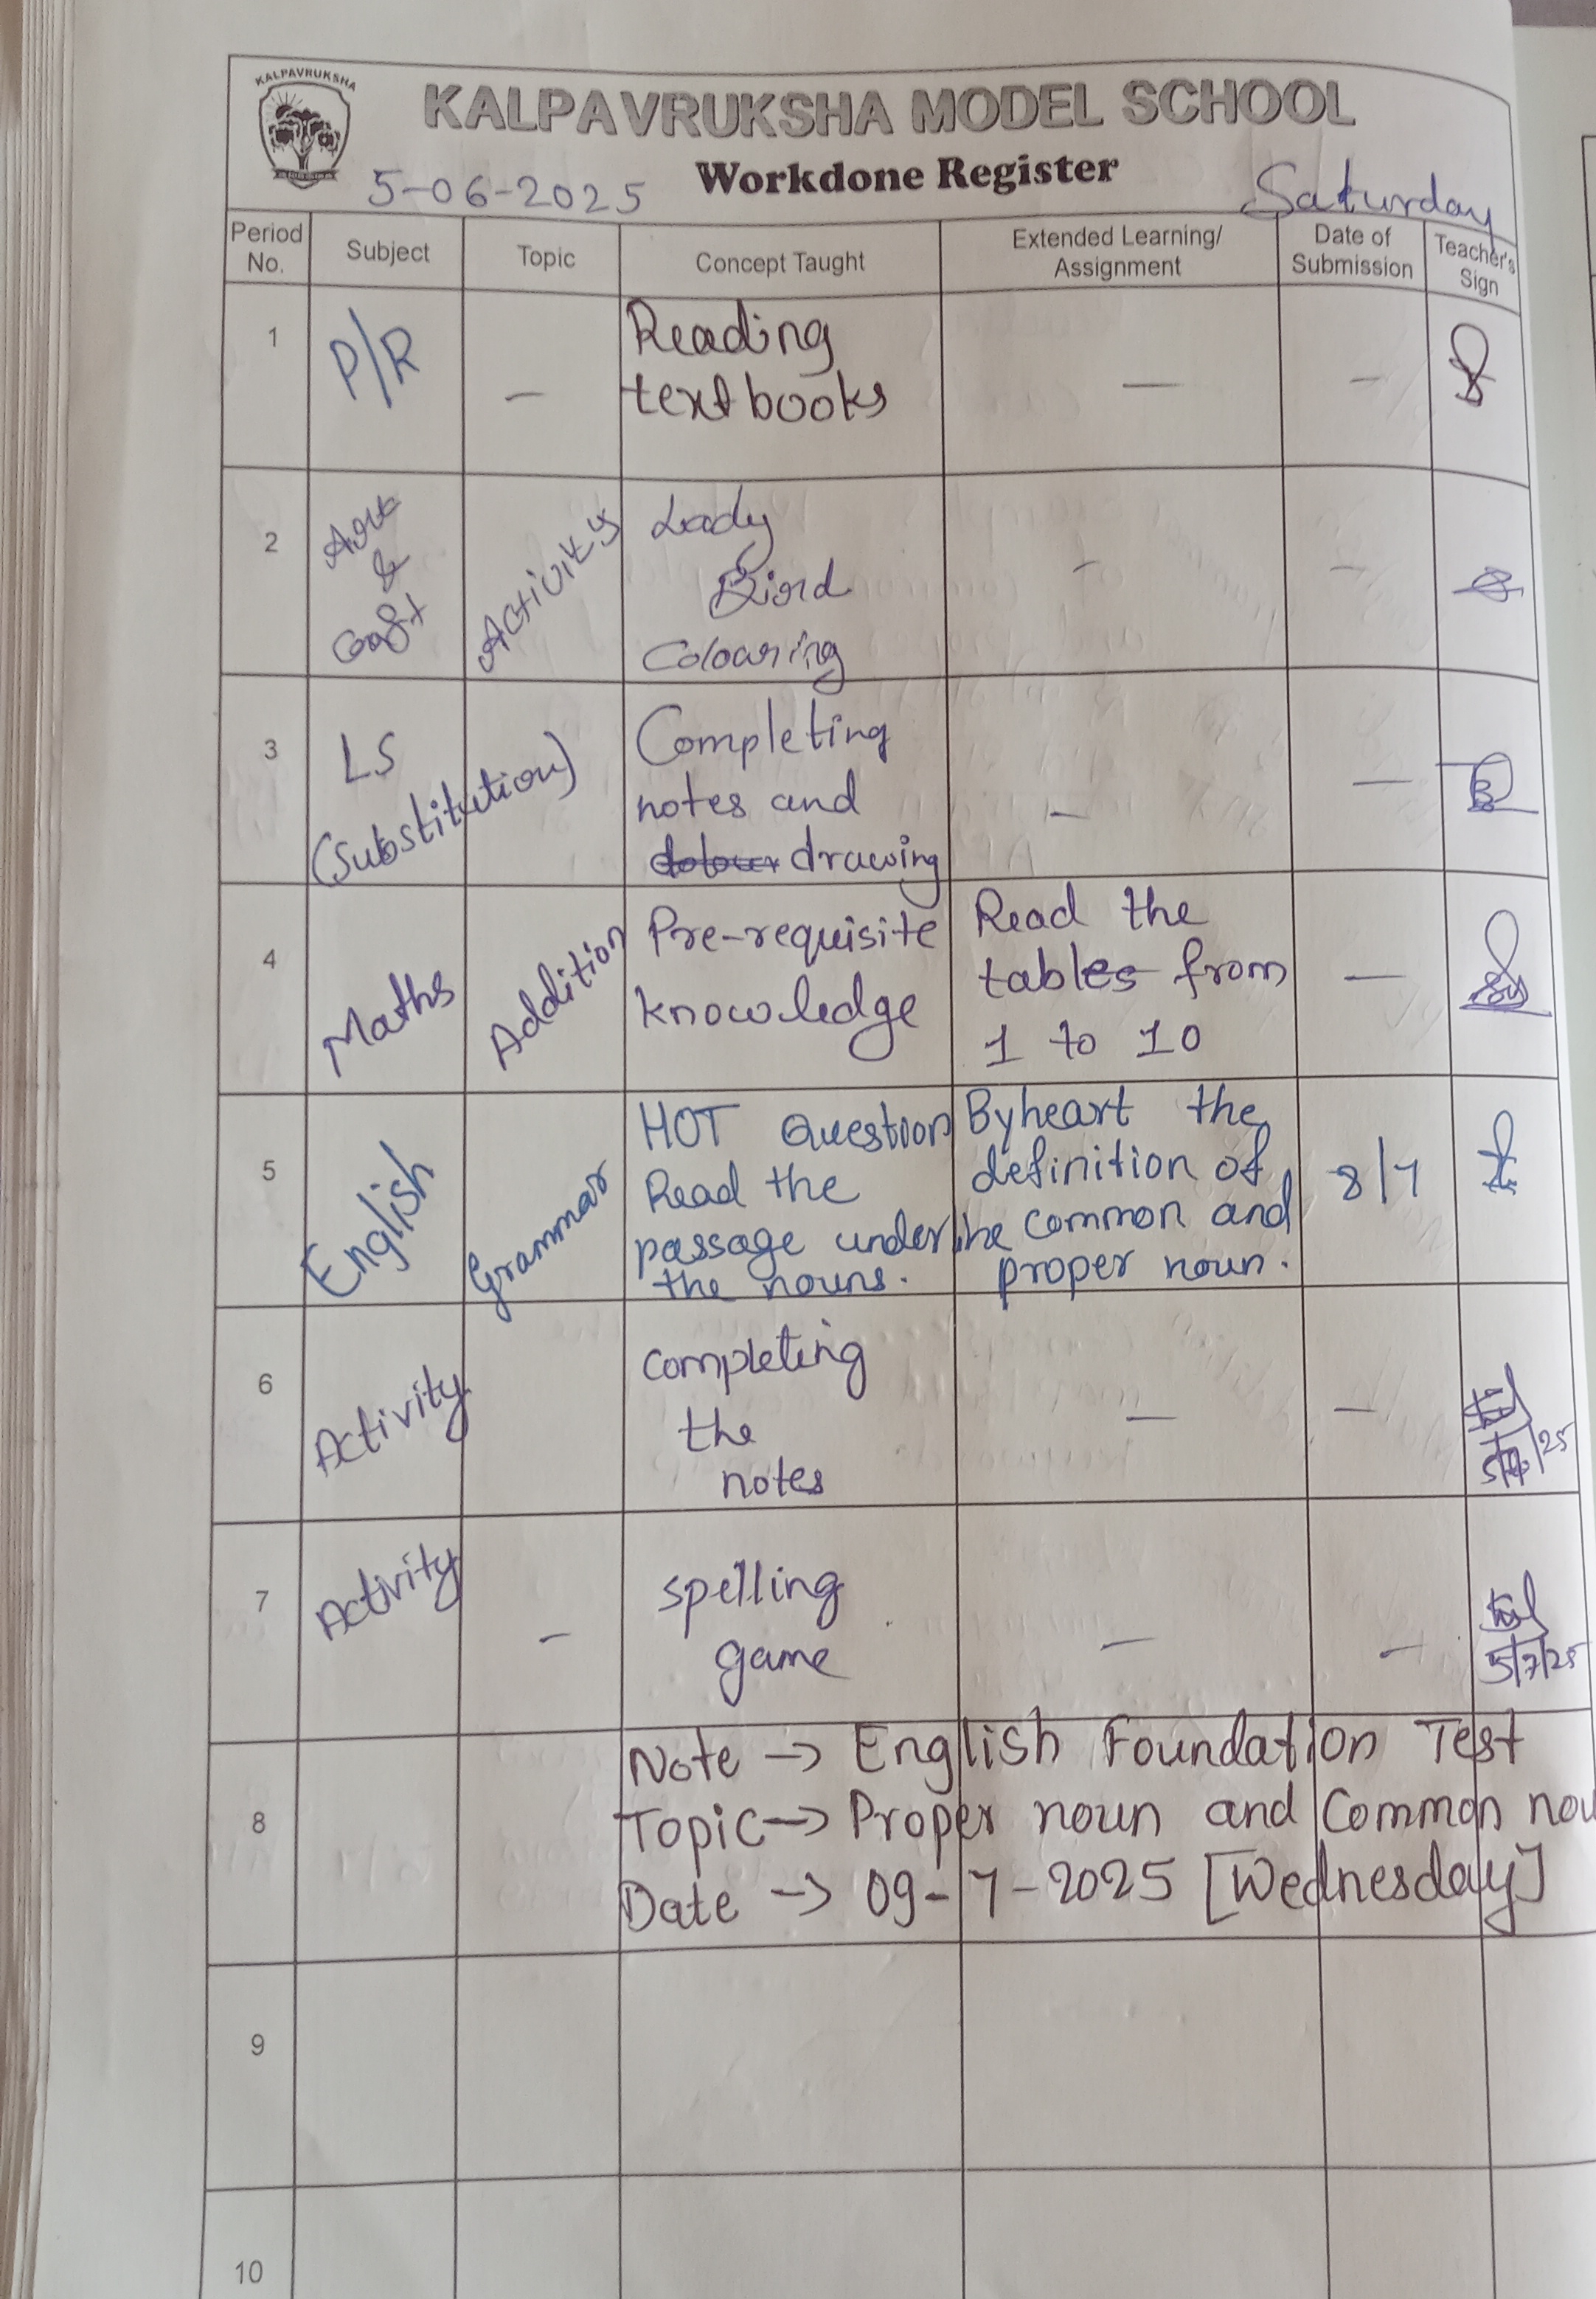 KALPAVRUKSHA
KALPAVRUKSHA MODEL SCHOOL
Workdone Register
5-06-2025
Saturday
Period No. Subject Topic Concept Taught Extended Learning/ Assignment Date of Submission Teacher's Sign
1 P/R - Reading - -
textbooks
2 Art & Craft Activity Lady - -
Bird
Colouring
3 LS (Substitution) Completing - -
notes and
drawing
4 Maths Addition Pre-requisite Read the -
knowledge tables from
1 to 10
5 English Grammar HOT Question Byheart the 8/7
Read the definition of
passage underline common and
the nouns. proper noun.
6 Activity completing - -
the
notes
/25
7 Activity - spelling - -
game
5/7/25
8 Note → English Foundation Test
Topic → Proper noun and Common nou
Date → 09-7-2025 [Wednesday]
9
10